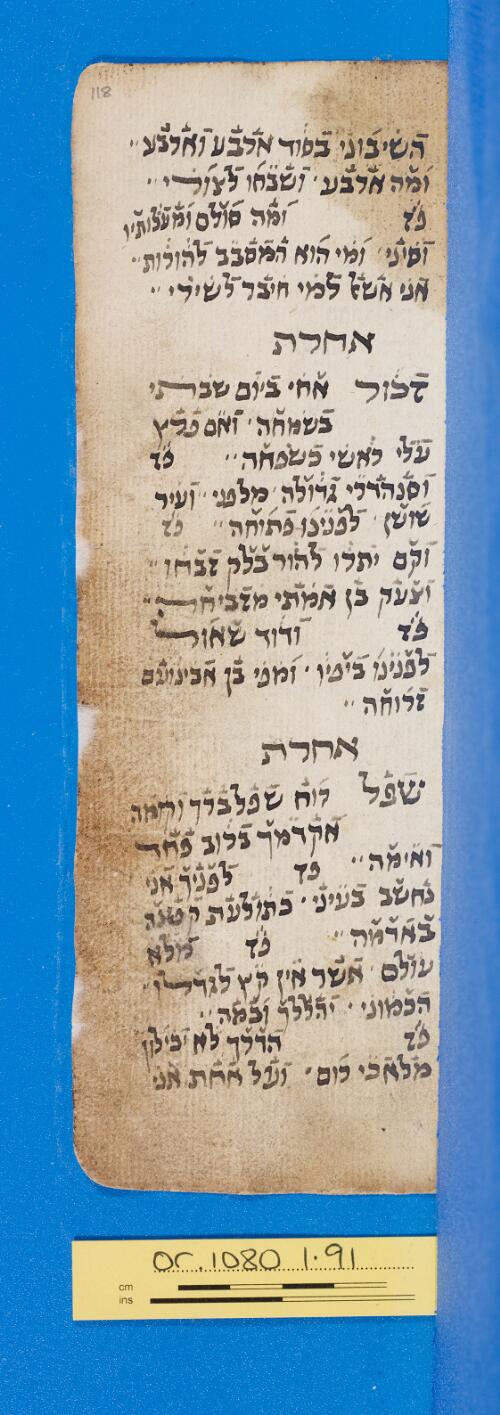 118
השיבוני בסוד ארבע וארבע
ומה ארבע ושבחו לצורי
כד ומה סולם ומעלותיו
וסיני ומי הוא המסבב להורות
אני אשאל למי חיבר לשירי
אחרת
זכור אחי ביום שבתי
בשמחה ואם פליץ
עלי ראשי כשפחה כד
וסנהדרי גדולה מלפני ועיר
שושן לפנינו פתוחה כד
וקם יתרו להור בלק זבחו
וצעק בן אמתי מזביחה
כד ודוד שאול
לפנינו ביפיו ומפי בן אבינועם
זרוחה
אחרת
שפל רוח שפל ברך וקמה
אקדמך ברוב פחד
ואימה כד לפניך אני
נחשב בעיני כתולעת קטנה
באדמה כד מלא
עולם אשר אין קץ לגדלו
הכמוני יהללך ובמה
כד הדרך לא יכילון
מלאכי רום ועל אחת אני
Or.1080 1.91
cm
ins